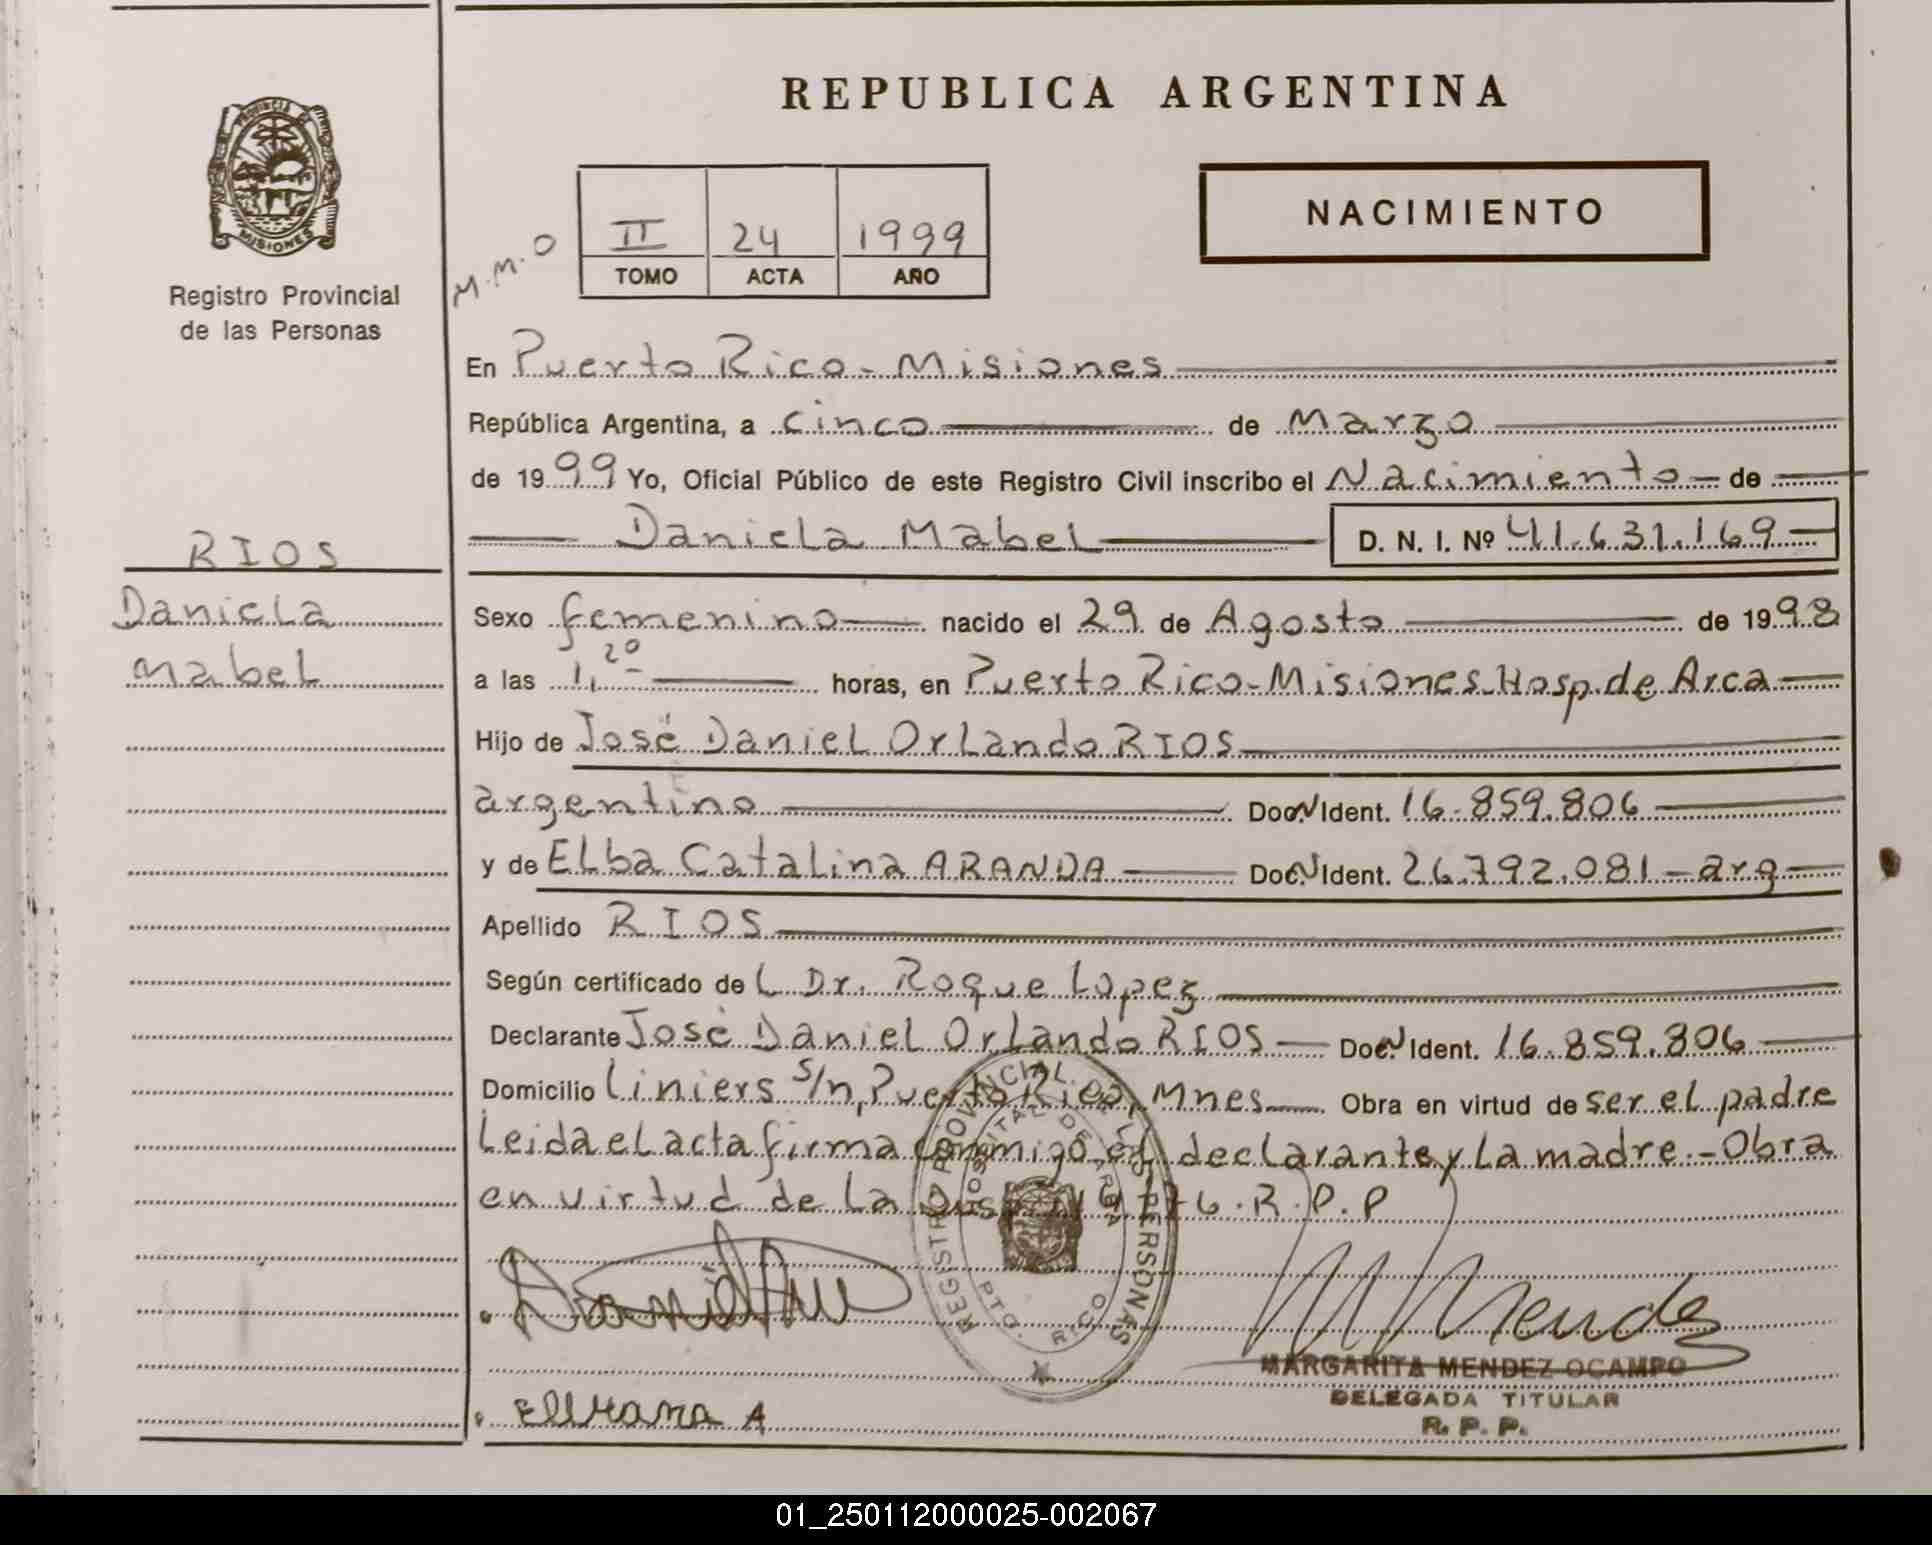 REPUBLICA ARGENTINA
PROVINCIA
MISIONES
Registro Provincial
de las Personas
M.M.O
II 24 1999
TOMO ACTA AÑO
NACIMIENTO
En Puerto Rico - Misiones
República Argentina, a cinco de Marzo
de 1999 Yo, Oficial Público de este Registro Civil inscribo el Nacimiento de
Daniela Mabel D. N. I. Nº 41.631.169
RIOS
Daniela
Mabel
Sexo femenino nacido el 29 de Agosto de 1998
a las 1,20 horas, en Puerto Rico - Misiones - Hosp. de Area
Hijo de José Daniel Orlando RIOS
argentino Doc. N Ident. 16.859.806
y de Elba Catalina ARANDA Doc. N Ident. 26.792.081 - arg
Apellido RIOS
Según certificado de L Dr. Roque Lopez
Declarante José Daniel Orlando RIOS Doc. N Ident. 16.859.806
Domicilio Liniers s/n, Puerto Rico, Mnes Obra en virtud de ser el padre
Leida el acta firma conmigo el declarante y La madre. - Obra
en virtud de La R.P.P
REGISTRO PROVINCIAL DE LAS PERSONAS
HOSPITAL DE AREA
PTO. RICO
M Mendez
MARGARITA MENDEZ OCAMPO
DELEGADA TITULAR
R. P. P.
01_250112000025-002067